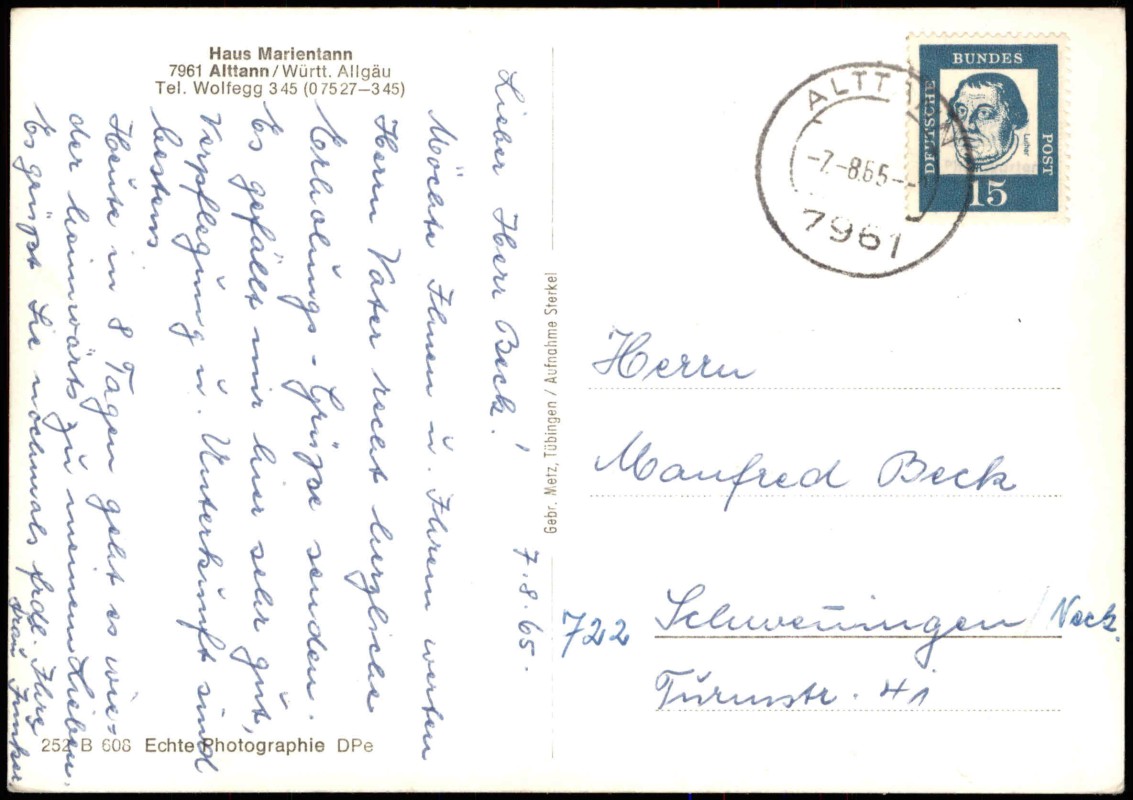 Haus Marientann
7961 Alttann/Württ. Allgäu
Tel. Wolfegg 345 (07527–345)
7.8.65.
Lieber Herr Beck!
Möchte Ihnen u. Ihrem werten
Herrn Vater recht herzliche
Erholungs-Grüße senden.
Es gefällt mir hier sehr gut,
Verpflegung u. Unterkunft sind
bestens
Heute in 8 Tagen geht es wie=
der heimwärts zu meinen Lieben.
Es grüßt Sie nochmals frdl. Ihre
Frau Junker.
252 B 608 Echte Photographie DPe
Gebr. Metz, Tübingen / Aufnahme Sterkel
DEUTSCHE
BUNDES
POST
Luther
15
ALTTANN
-7.-8.65.-
7961
Herrn
Manfred Beck
722 Schwenningen/Neck.
Turnstr. 41